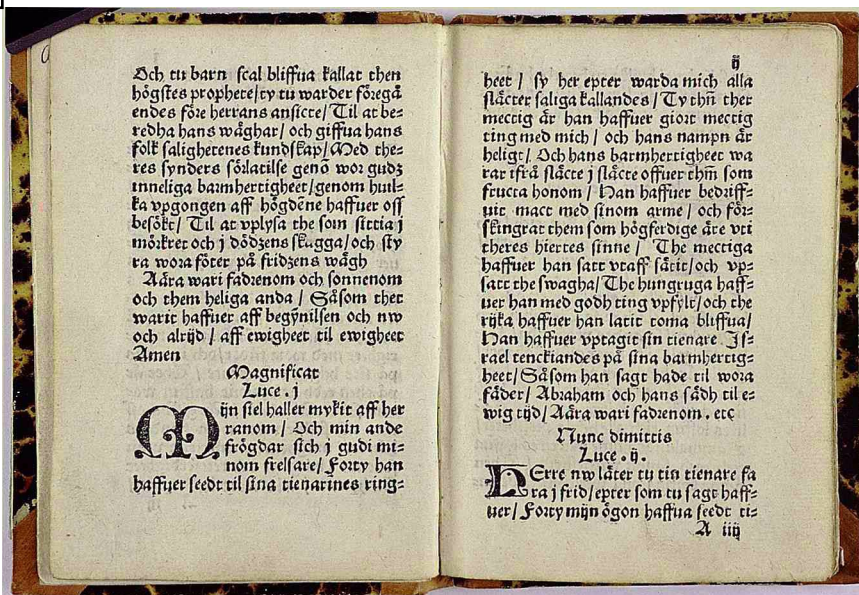 Och tu barn scal bliffua kallat then
högstes prophete/ ty tu warder föregå
endes före herrans ansicte/ Til at be=
redha hans wäghar/ och giffua hans
folk salighetenes kundskap/ Med the=
res synders förlatilse genō wor gudz
inneliga barmhertigheet/ genom huil=
ka vpgongen aff högdēne haffuer oss
besökt/ Til at vplysa the som sittia j
mörkret och j dödzens skugga/ och sty
ra wora föter på fridzens wägh
Aära wari fadrenom och sonnenom
och them heliga anda / Såsom thet
warit haffuer aff begynilsen och nw
och altijd / aff ewigheet til ewigheet
Amen
Magnificat
Luce . j
Mijn siel haller mykit aff her
ranom / Och min ande
frögdar sich j gudi mi=
nom frelsare/ Forty han
haffuer seedt til sina tienarines ring=
ij
heet / sy her epter warda mich alla
släcter saliga kallandes / Ty thn̄ ther
mectig är han haffuer giort mectig
ting med mich / och hans nampn är
heligt/ Och hans barmhertigheet wa
rar ifrå släcte j släcte offuer thm̄ som
fructa honom / Han haffuer bedriff=
uit mact med sinom arme / och för=
skingrat them som högferdige äre vti
theres hiertes sinne / The mectiga
haffuer han satt vtaff sätit/ och vp=
satt the swagha/ The hungruga haff=
uer han med godh ting vpfylt/ och the
rijka haffuer han latit toma bliffua/
Han haffuer vptagit sin tienare Is=
rael tenckiandes på sina barmhertig=
heet/ Såsom han sagt hade til wora
fäder/ Abraham och hans sädh til e=
wig tijd/ Aära wari fadrenom . etc
Nunc dimittis
Luce . ij .
HErre nw läter tu tin tienare fa
ra j frid/ epter som tu sagt haff=
uer/ Forty mijn ögon haffua seedt ti=
A iiij